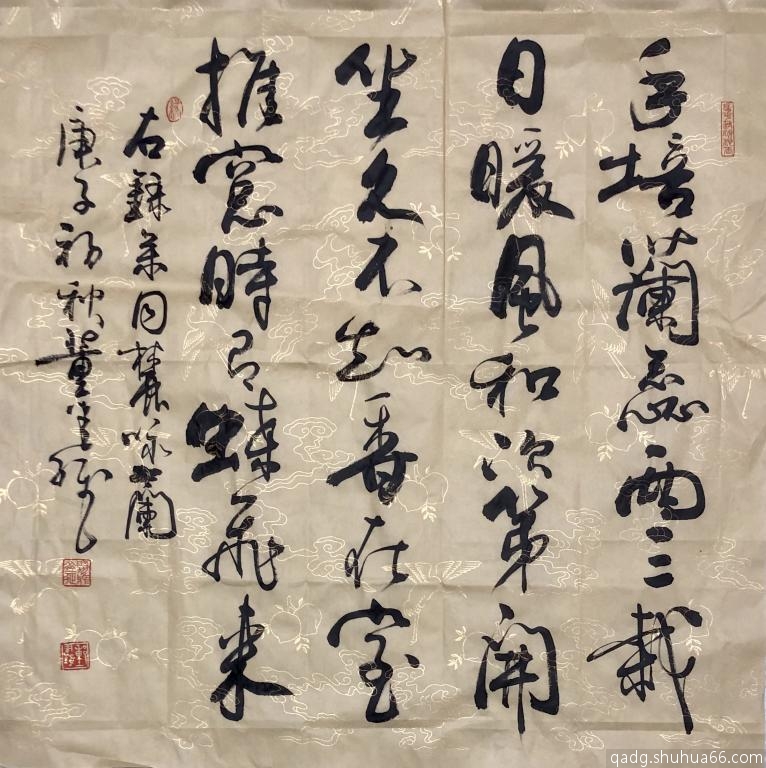 手培蘭蕊兩三栽
日暖風和次第開
坐久不知香在室
推窻時有蝶飛来
右錄余同麓咏蘭
庚子初秋董
qadg.shuhua66.com